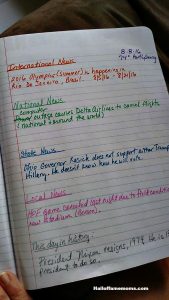 International News
8-8-16
2016 Olympics (Summer) is happening in
Rio De Janeiro, Brasil - 8/5/16 - 8/21/16
National News
computer
outage causes Delta Airlines to cancel flights
(national & around the world)
State News
Ohio Governor Kasich does not support either Trump
Hillery. He doesn't know how he will vote.
Local News
HOF Game canceled last night due to field conditions
new stadium (Benson).
This day in history
President Nixon resigns, 1974. He is th
President to do so.
Halloffamemoms.com